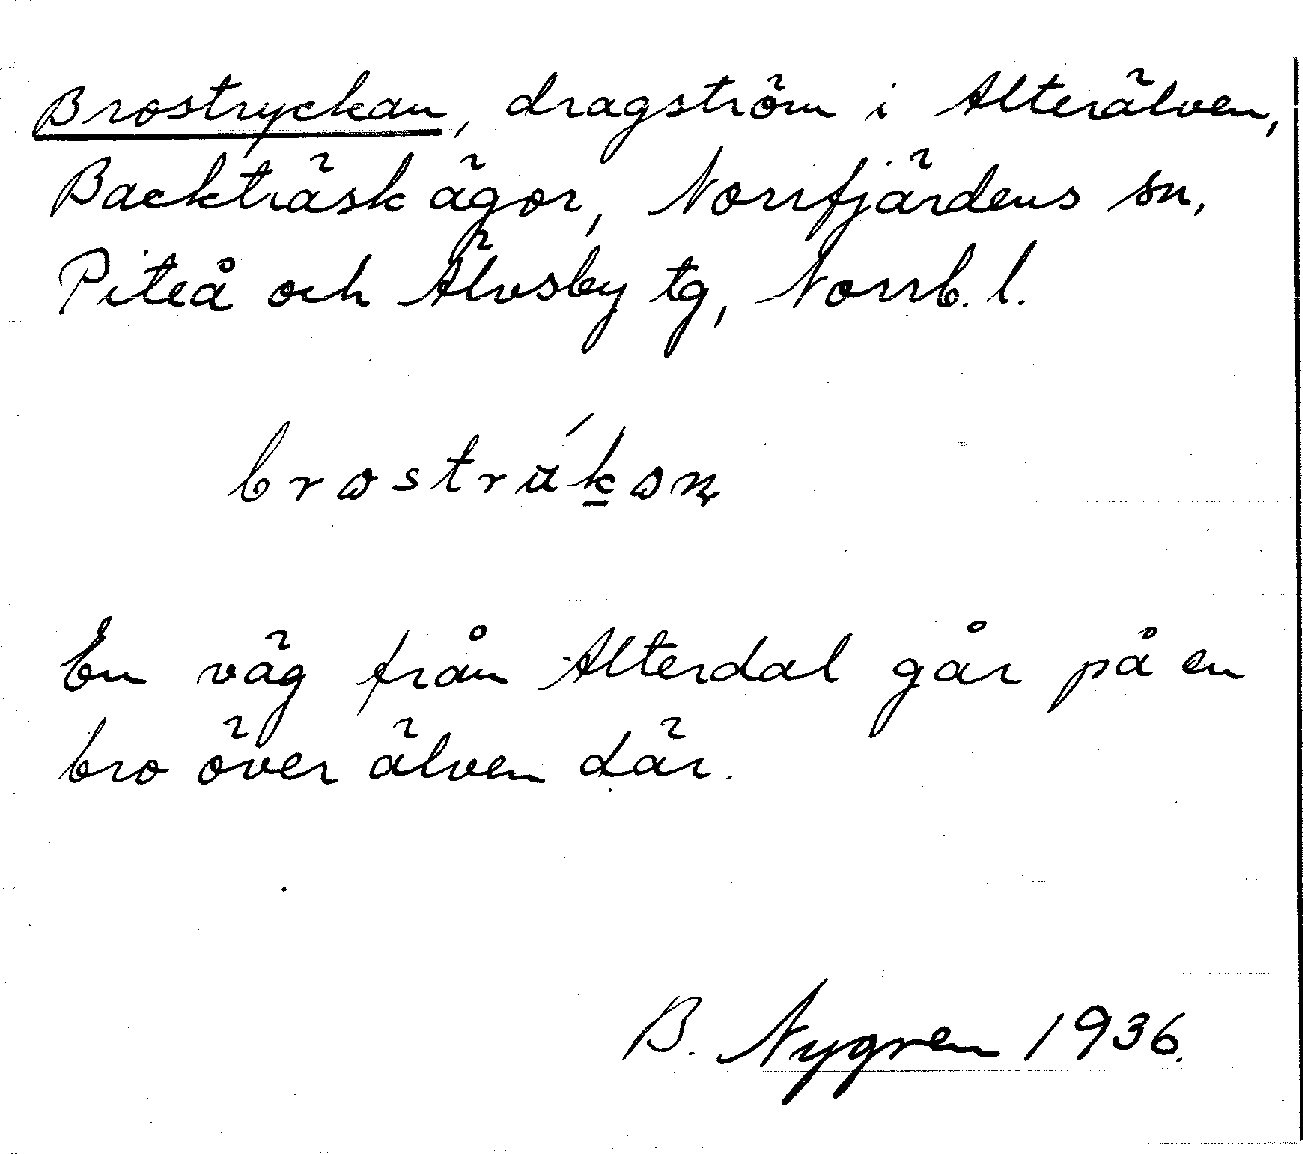 Brostryckan, dragström i Alterälven,
Backträsk ägor, Norrfjärdens sn,
Piteå och Älvsby tg, Norrb. l.
En väg från Alterdal går på en
bro över älven där.
B. Nygren 1936.